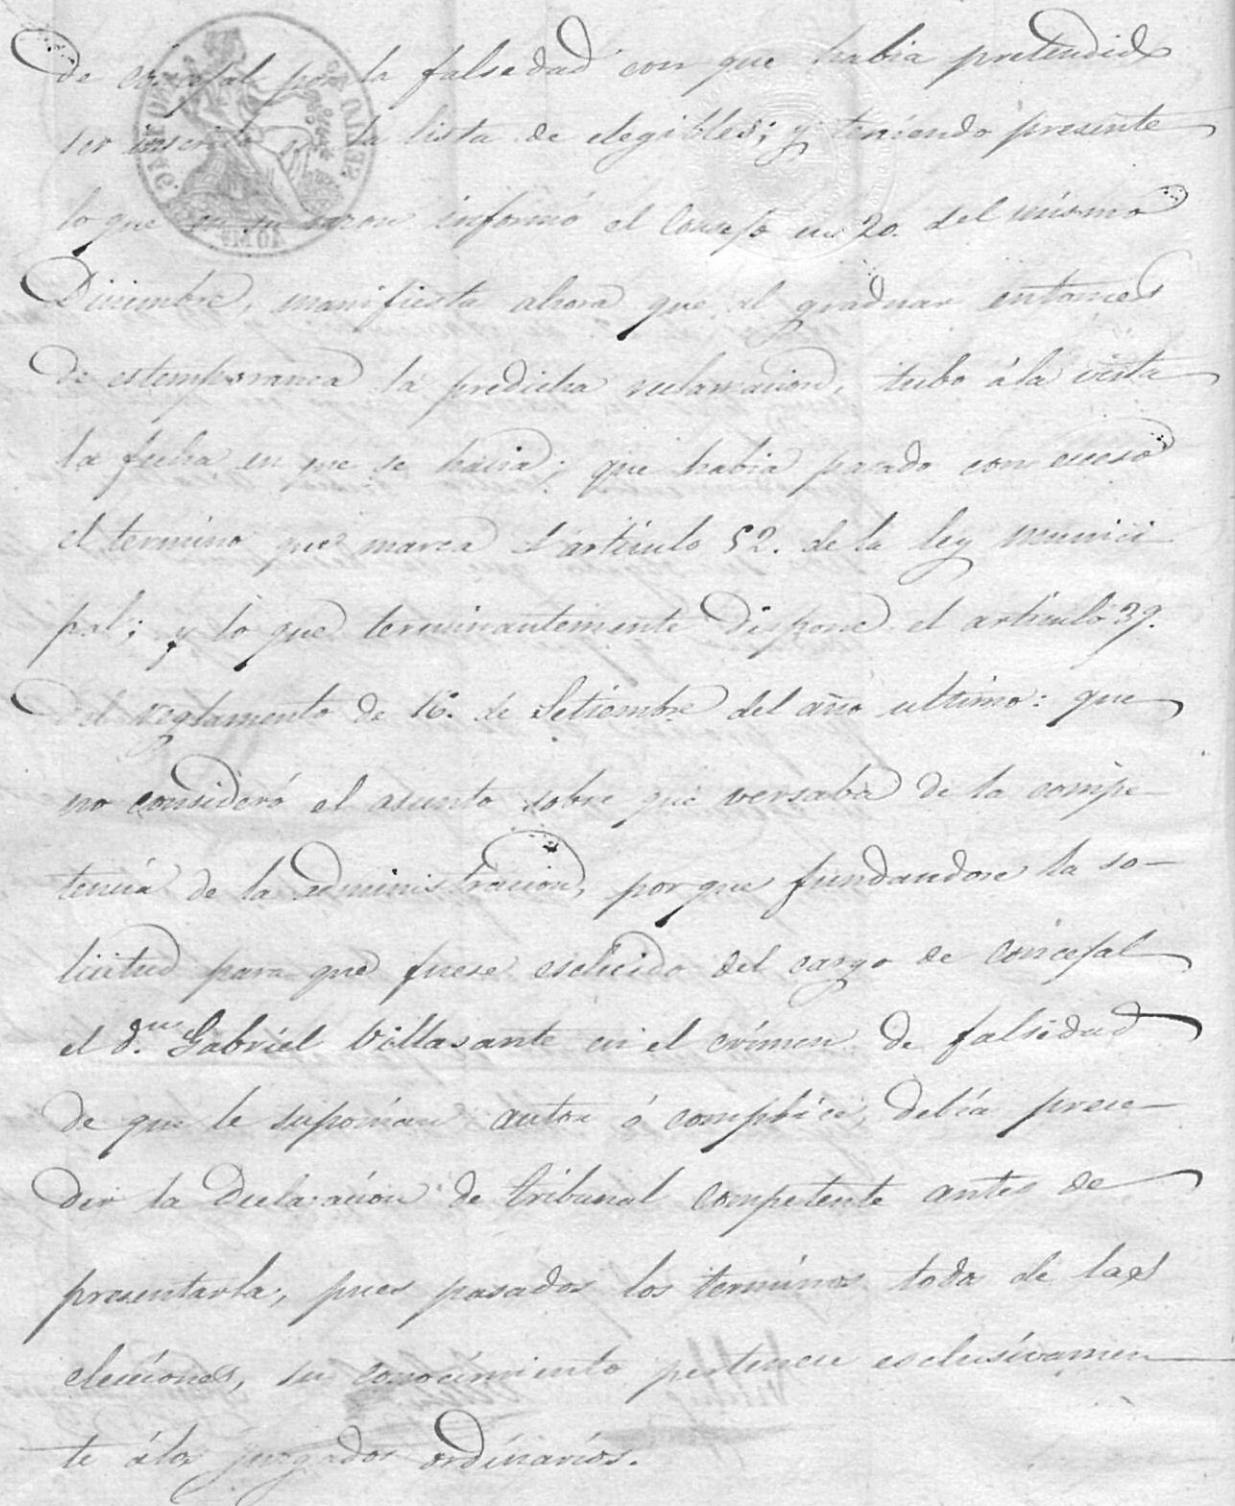 de concejal por la falsedad con que habia pretendido
ser inscrito en la lista de elegibles; y teniendo presente
lo que en su razon informó el Consejo en 20. del mismo
Diciembre, manifiesta ahora que al graduar entonces
de estemporanea la predicha reclamacion, tubo á la vista
la fecha en que se hacia; que habia pasado con esceso
el termino que marca el articulo 52. de la ley munici
pal; y lo que terminantemente dispone el articulo 39.
del reglamento de 16. de Setiembre del año ultimo: que
no consideró el asunto sobre que versaba de la compe-
tencia de la administracion, por que fundandose la so-
licitud para que fuese escluido del cargo de Concejal
el d.n Gabriel Villasante en el crímen de falsedad
de que le suponian autor ó complice, debía prece-
der la declaracion de tribunal competente antes de
presentarla, pues pasados los terminos todos de las
elecciones, su conocimiento pertenece esclusivamen
te á los juzgados ordinarios.